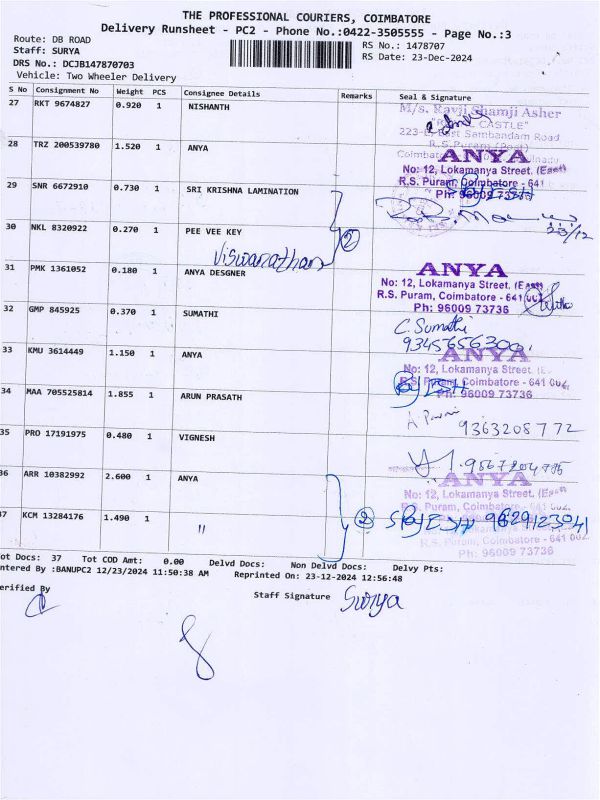 THE PROFESSIONAL COURIERS, COIMBATORE
Delivery Runsheet - PC2 - Phone No.:0422-3505555 - Page No.:3
Route: DB ROAD
RS No.: 1478707
Staff: SURYA
RS Date: 23-Dec-2024
DRS No.: DCJB147870703
Vehicle: Two Wheeler Delivery
S No Consignment No Weight PCS Consignee Details Remarks Seal & Signature
27 RKT 9674827 0.920 1 NISHANTH
M/s. Ravji Shamji Asher
CASTLE"
223- East Sambandam Road
R.S. Puram (Post)
28 TRZ 200539780 1.520 1 ANYA
ANYA
No: 12, Lokamanya Street. (East)
R.S. Puram, Coimbatore - 641
Ph: 96009 73736
29 SNR 6672910 0.730 1 SRI KRISHNA LAMINATION
23/12
30 NKL 8320922 0.270 1 PEE VEE KEY
2
Viswanathan
31 PMK 1361052 0.180 1 ANYA DESGNER
ANYA
No: 12, Lokamanya Street. (East)
R.S. Puram, Coimbatore - 641 002
Ph: 96009 73736
32 GMP 845925 0.370 1 SUMATHI
C. Sumathi
9345656300.
33 KMU 3614449 1.150 1 ANYA
ANYA
No: 12, Lokamanya Street. (E
R.S. Puram, Coimbatore - 641 002,
Ph: 96009 73736
34 MAA 705525814 1.855 1 ARUN PRASATH
9363208772
35 PRO 17191975 0.480 1 VIGNESH
36 ARR 10382992 2.600 1 ANYA
ANYA
No: 12, Lokamanya Street. (East
37 KCM 13284176 1.490 1 "
2
9629123041
R.S. Puram, Coimbatore - 641 002
Ph: 96009 73736
ot Docs: 37 Tot COD Amt: 0.00 Delvd Docs: Non Delvd Docs: Delvy Pts:
ntered By :BANUPC2 12/23/2024 11:50:38 AM Reprinted On: 23-12-2024 12:56:48
erified By
Staff Signature Surya